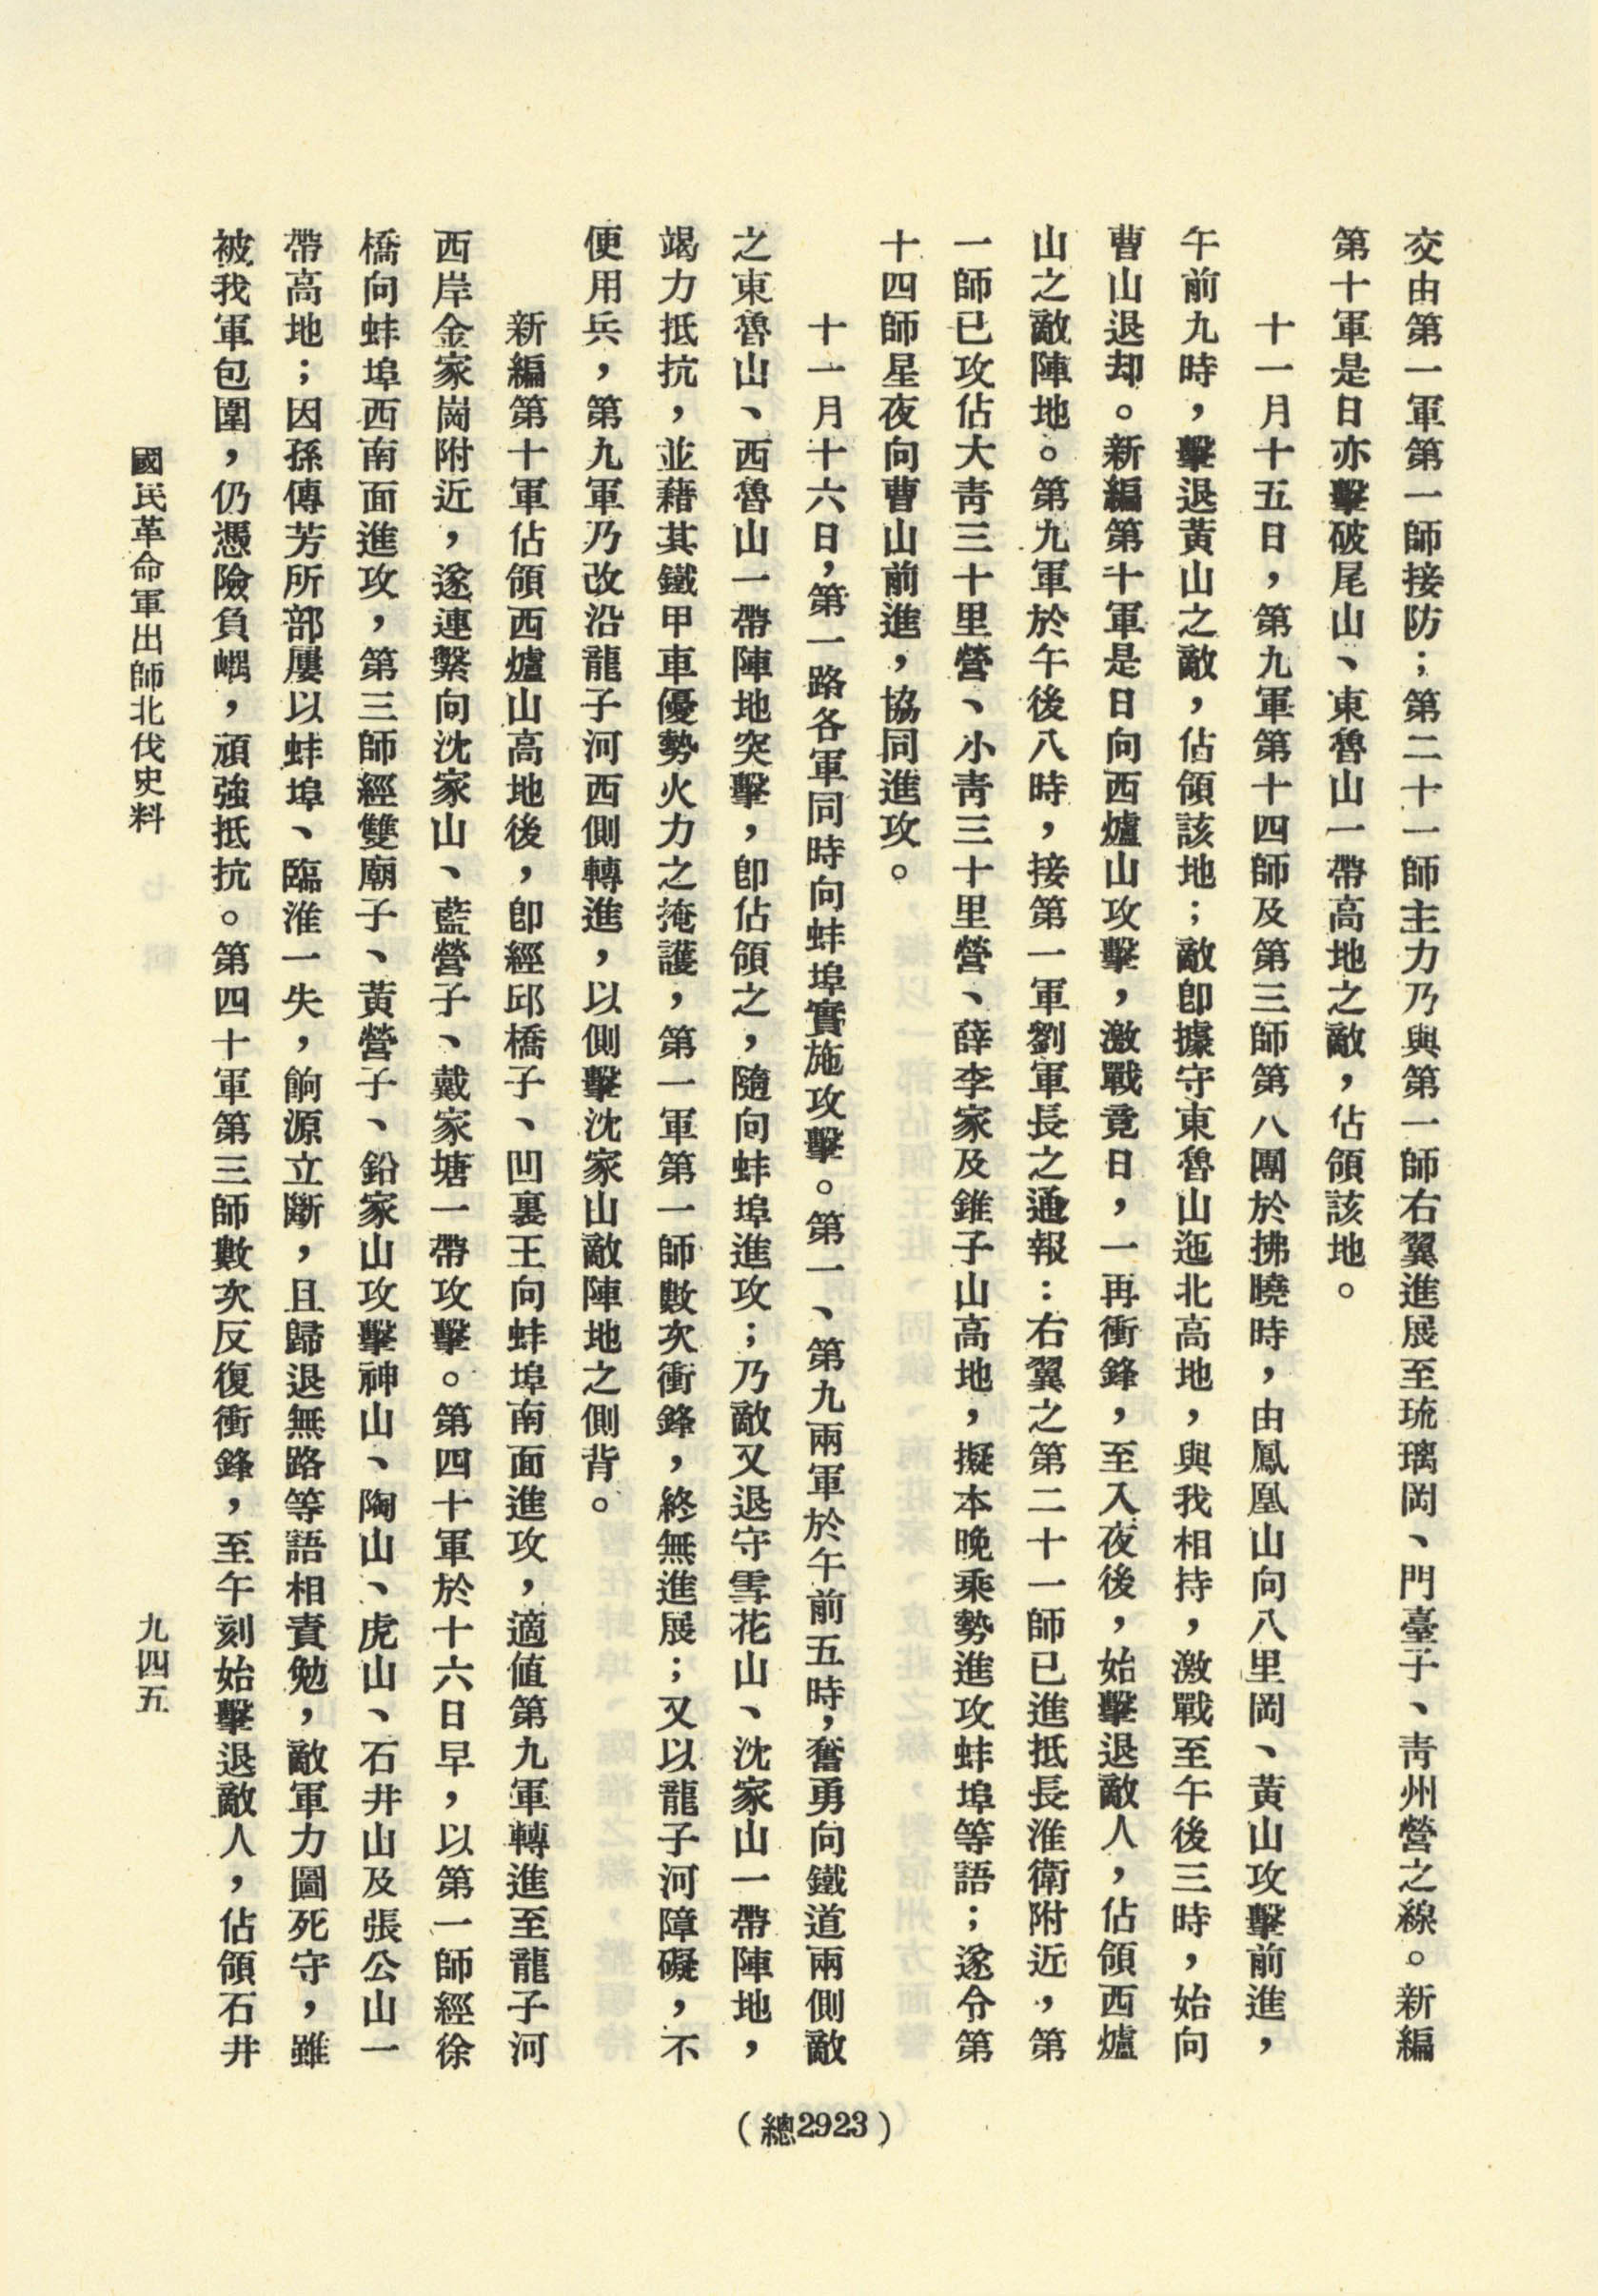 交由第一軍第一師接防；第二十一師主力乃與第一師右翼進展至琉璃岡、門臺子、靑州營之線。新編
第十軍是日亦擊破尾山、東魯山一帶高地之敵，佔領該地。
十一月十五日，第九軍第十四師及第三師第八團於拂曉時，由鳳凰山向八里岡、黃山攻擊前進，
午前九時，擊退黃山之敵，佔領該地；敵卽據守東魯山迤北高地，與我相持，激戰至午後三時，始向
曹山退却。新編第十軍是日向西爐山攻擊，激戰竟日，一再衝鋒，至入夜後，始擊退敵人，佔領西爐
山之敵陣地。第九軍於午後八時，接第一軍劉軍長之通報：右翼之第二十一師已進抵長淮衛附近，第
一師已攻佔大靑三十里營、小靑三十里營、薛李家及錐子山高地，擬本晚乘勢進攻蚌埠等語；遂令第
十四師星夜向曹山前進，協同進攻。
十一月十六日，第一路各軍同時向蚌埠實施攻擊。第一、第九兩軍於午前五時，奮勇向鐵道兩側敵
之東魯山、西魯山一帶陣地突擊，卽佔領之，隨向蚌埠進攻；乃敵又退守雪花山、沈家山一帶陣地，
竭力抵抗，並藉其鐵甲車優勢火力之掩護，第一軍第一師數次衝鋒，終無進展；又以龍子河障礙，不
便用兵，第九軍乃改沿龍子河西側轉進，以側擊沈家山敵陣地之側背。
新編第十軍佔領西爐山高地後，卽經邱橋子、凹裏王向蚌埠南面進攻，適值第九軍轉進至龍子河
西岸金家崗附近，遂連繫向沈家山、藍營子、戴家塘一帶攻擊。第四十軍於十六日早，以第一師經徐
橋向蚌埠西南面進攻，第三師經雙廟子、黃營子、鉛家山攻擊神山、陶山、虎山、石井山及張公山一
帶高地；因孫傳芳所部屢以蚌埠、臨淮一失，餉源立斷，且歸退無路等語相責勉，敵軍力圖死守，雖
被我軍包圍，仍憑險負嵎，頑強抵抗。第四十軍第三師數次反復衝鋒，至午刻始擊退敵人，佔領石井
國民革命軍出師北伐史料
九四五
（總2923）